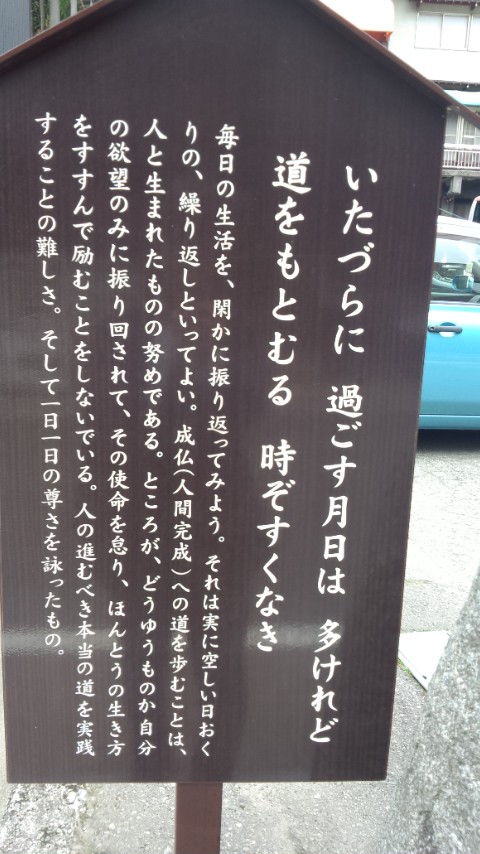 いたづらに　過ごす月日は　多けれど
道をもとむる　時ぞすくなき
毎日の生活を、閑かに振り返ってみよう。それは実に空しい日おく
りの、繰り返しといってよい。成仏（人間完成）への道を歩むことは、
人と生まれたものの努めである。ところが、どうゆうものか自分
の欲望のみに振り回されて、その使命を怠り、ほんとうの生き方
をすすんで励むことをしないでいる。人の進むべき本当の道を実践
することの難しさ。そして一日一日の尊さを詠ったもの。